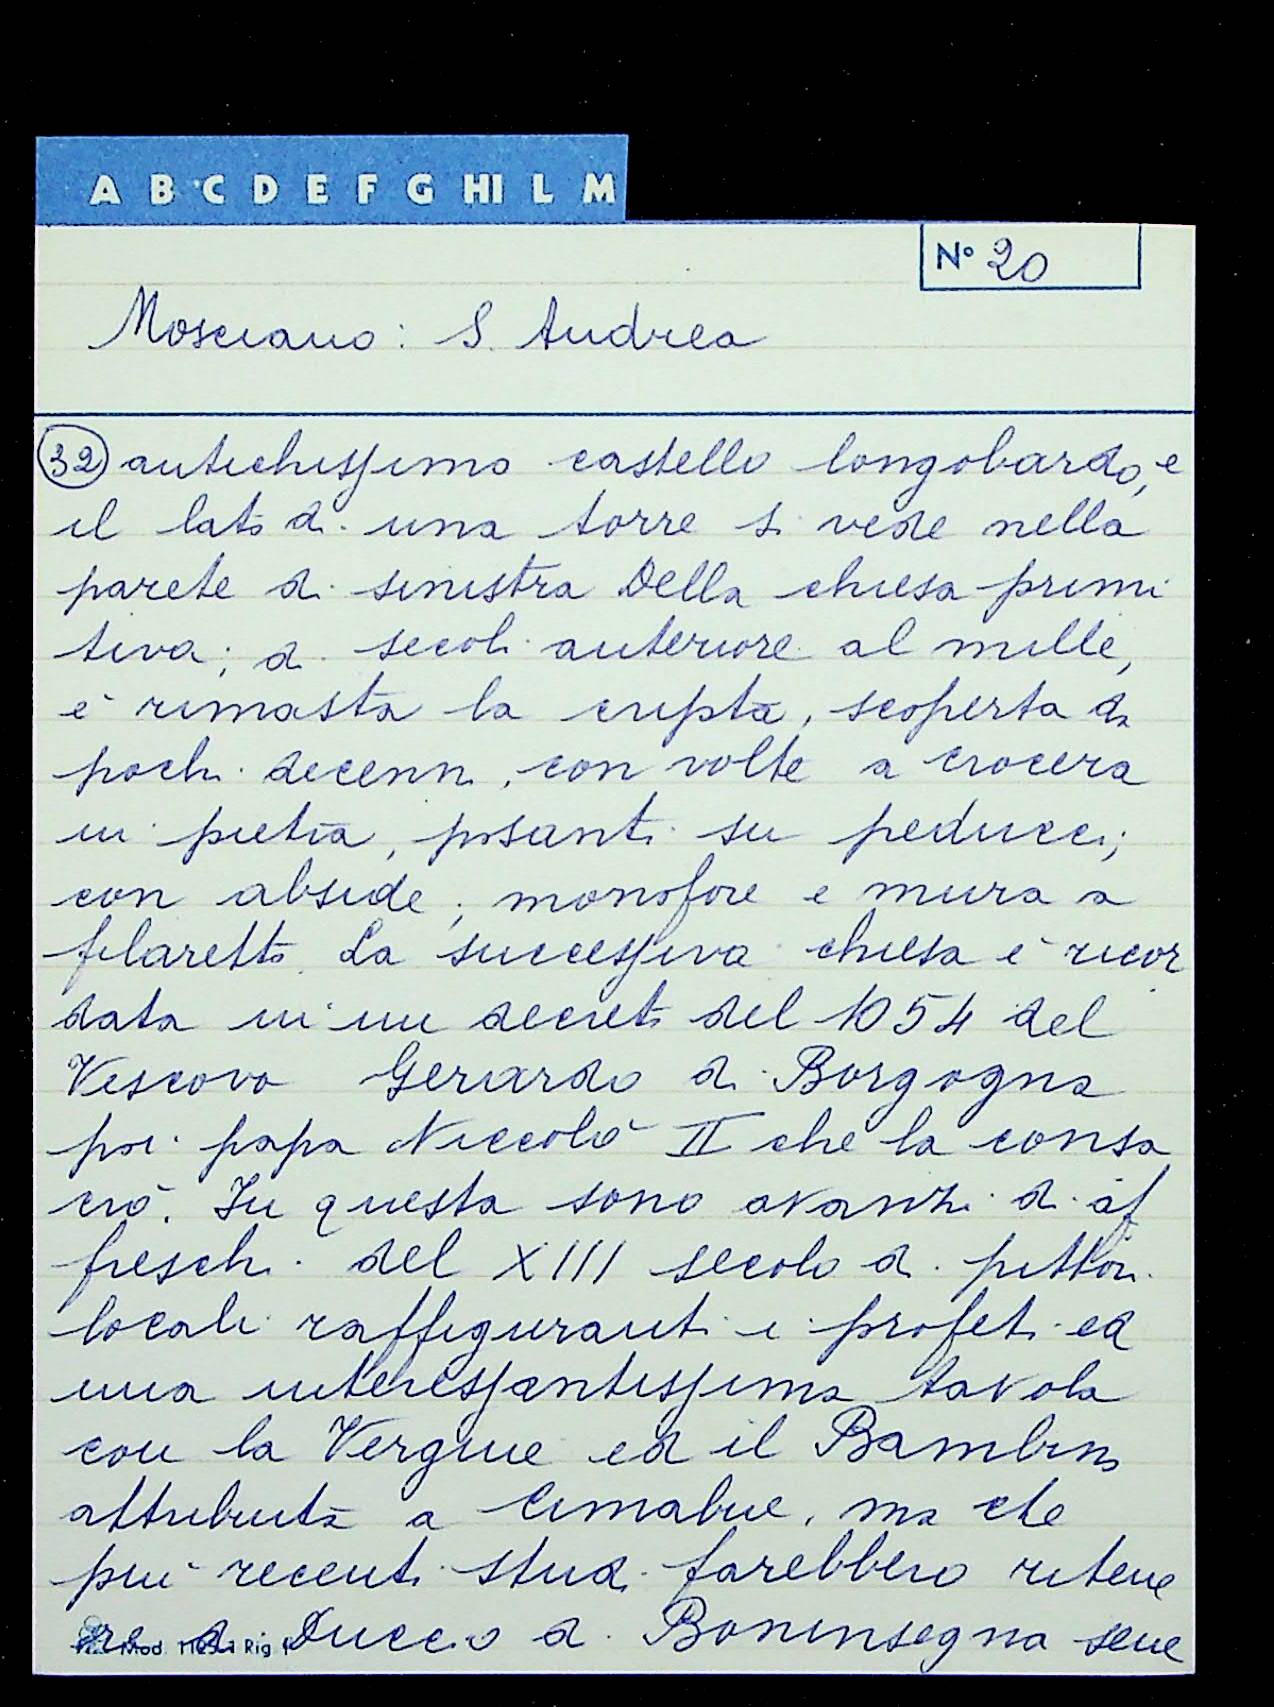 A B C D E F G HI L M
N° 20
Mosciano: S. Andrea
32 antichissimo castello longobardo, e
il lato di una torre si vede nella
parete di sinistra della chiesa primi
tiva; di secoli anteriore al mille,
è rimasta la cripta, scoperta da
pochi decenni, con volte a crocera
in pietra, posanti su peducci;
con abside, monofore e mura a
filaretto. La successiva chiesa è ricor
data in un decreto del 1054 del
Vescovo Gerardo di Borgogna
poi papa Niccolò II che la consa
crò. In questa sono avanzi di af
freschi del XIII secolo di pittori
locali raffiguranti i profeti ed
una interessantissima tavola
con la Vergine ed il Bambino
attribuita a Cimabue, ma che
più recenti studi farebbero ritene
re di Duccio di Boninsegna sene
Mod. Rig. 1